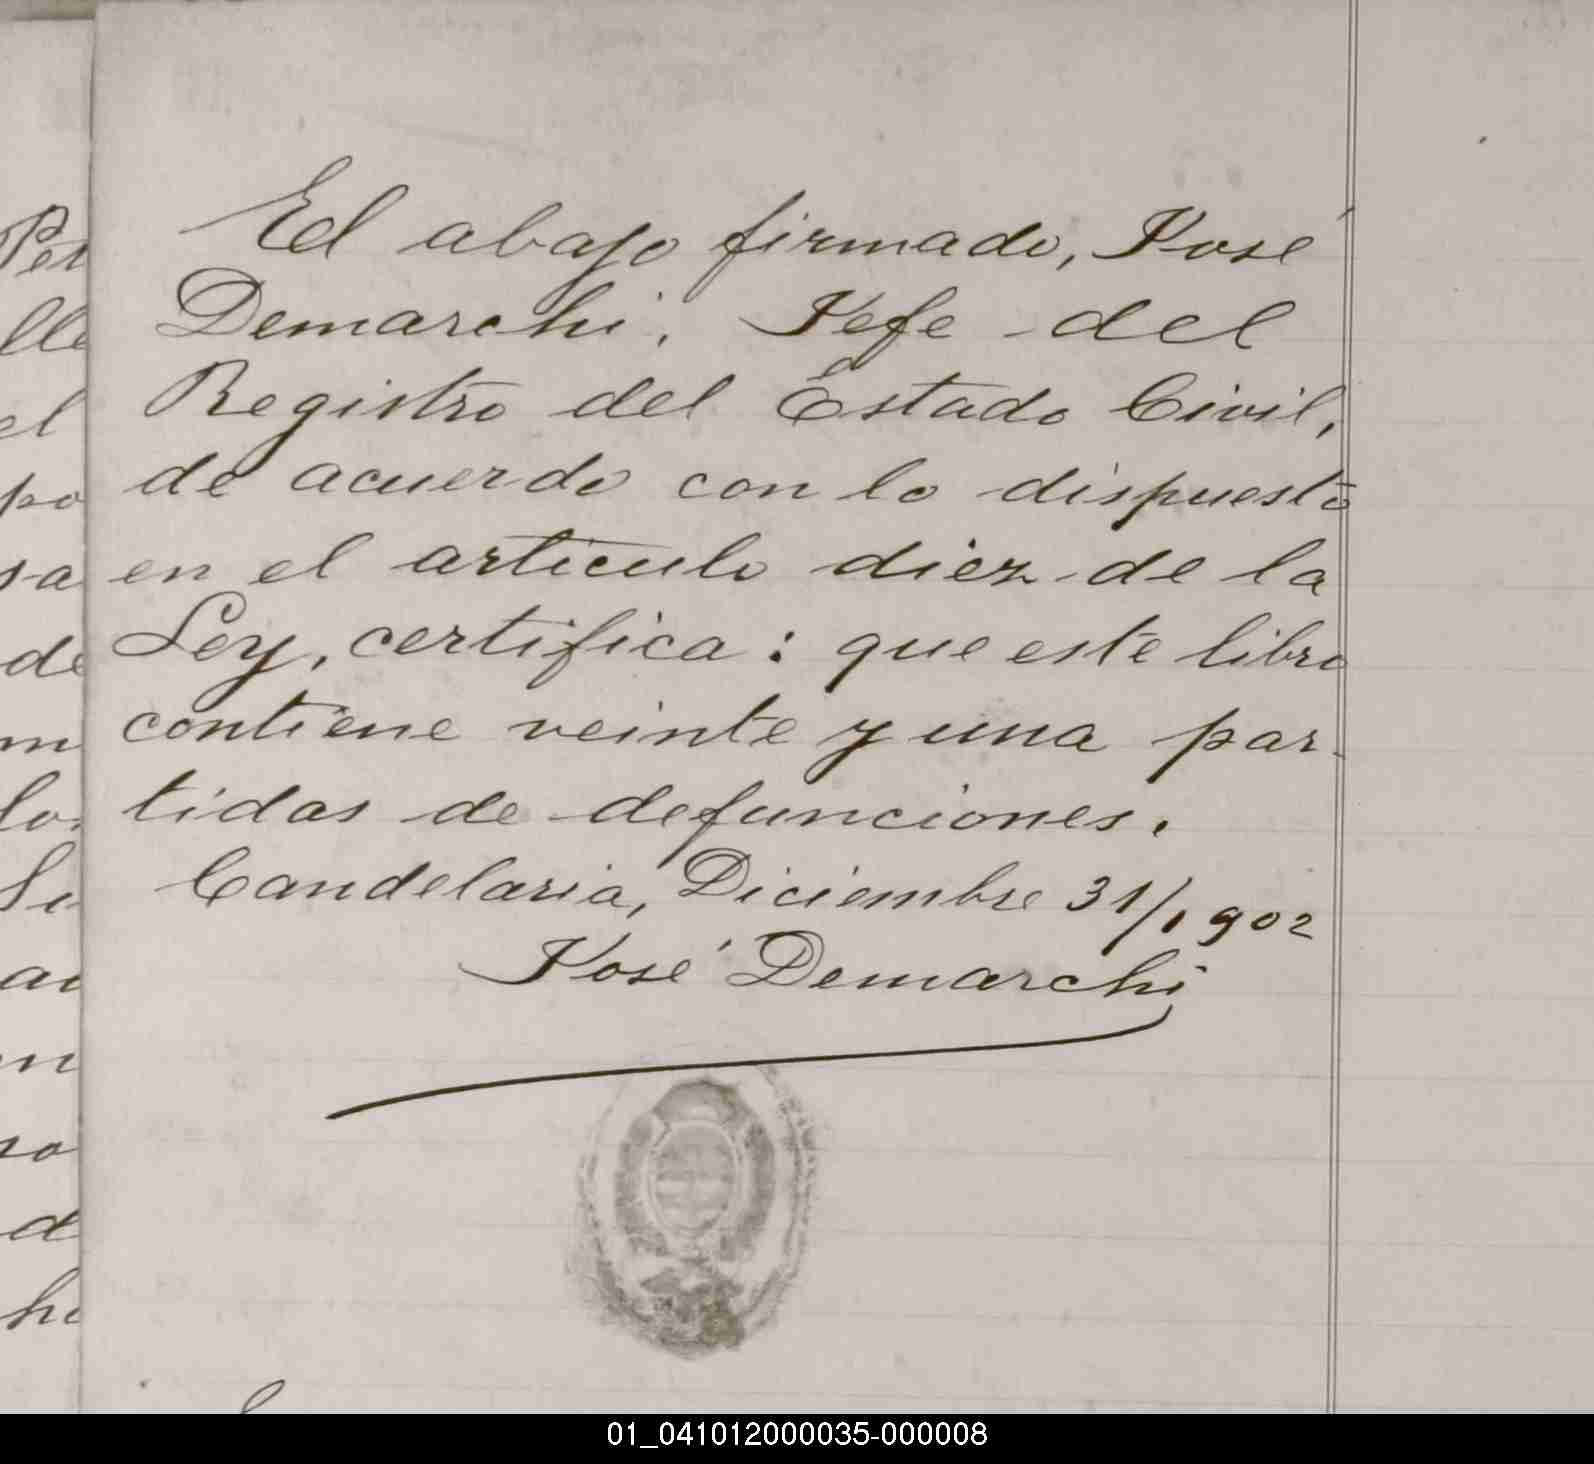 El abajo firmado, José
Demarchi, Jefe del
Registro del Estado Civil,
de acuerdo con lo dispuesto
en el articulo diez de la
Ley, certifica: que este libro
contiene veinte y una par-
tidas de defunciones.
Candelaria, Diciembre 31/1902
José Demarchi
01_041012000035-000008